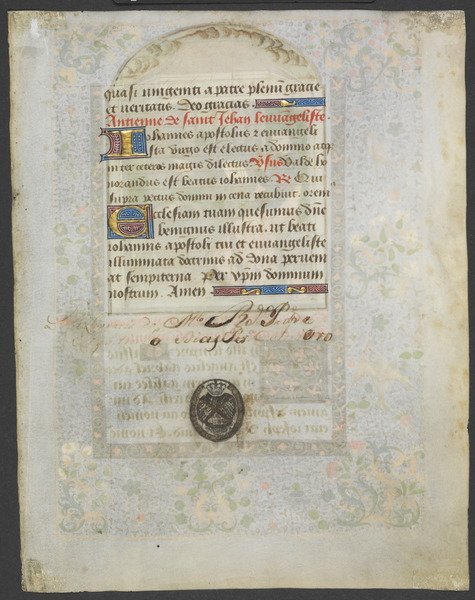 quasi unigeniti a patre plenū gracie
et veritatis. Deo gracias
Antienne de saint Jehan leuvāgeliste.
Johannes apostolus et euuangeli
sta virgo est electus a domino atqȝ
inter ceteros magis dilectus. Vsus Valde ho
norandus est beatus iohannes. R Qui
supra pectus domini in cena recubuit. orem
Ecclesiam tuam quesumus dn̄e
benignus illustra. ut beati
iohannis apostoli tui et euuangeliste
illuminata doctrinis ad dona perueni
at sempiterna Per xp̄m dominum
nostrum. Amen